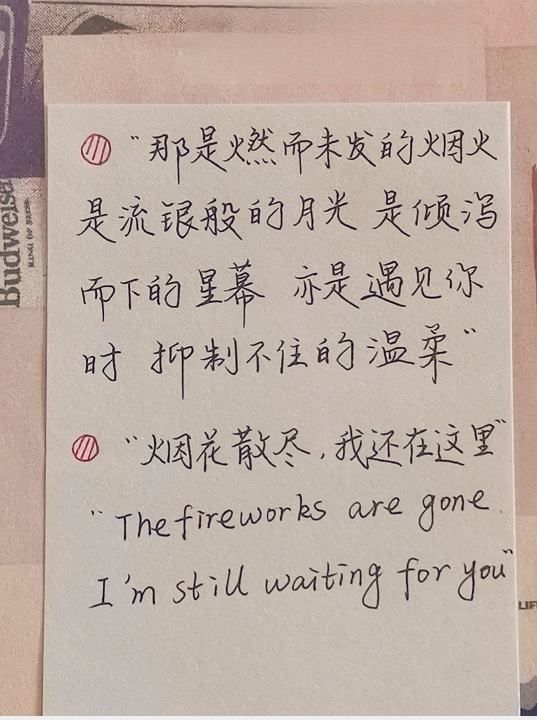 “那是燃而未发的烟火
是流银般的月光 是倾泻
而下的星幕 亦是遇见你
时 抑制不住的温柔”
“烟花散尽，我还在这里”
“The fireworks are gone.
I'm still waiting for you”
Budweiser